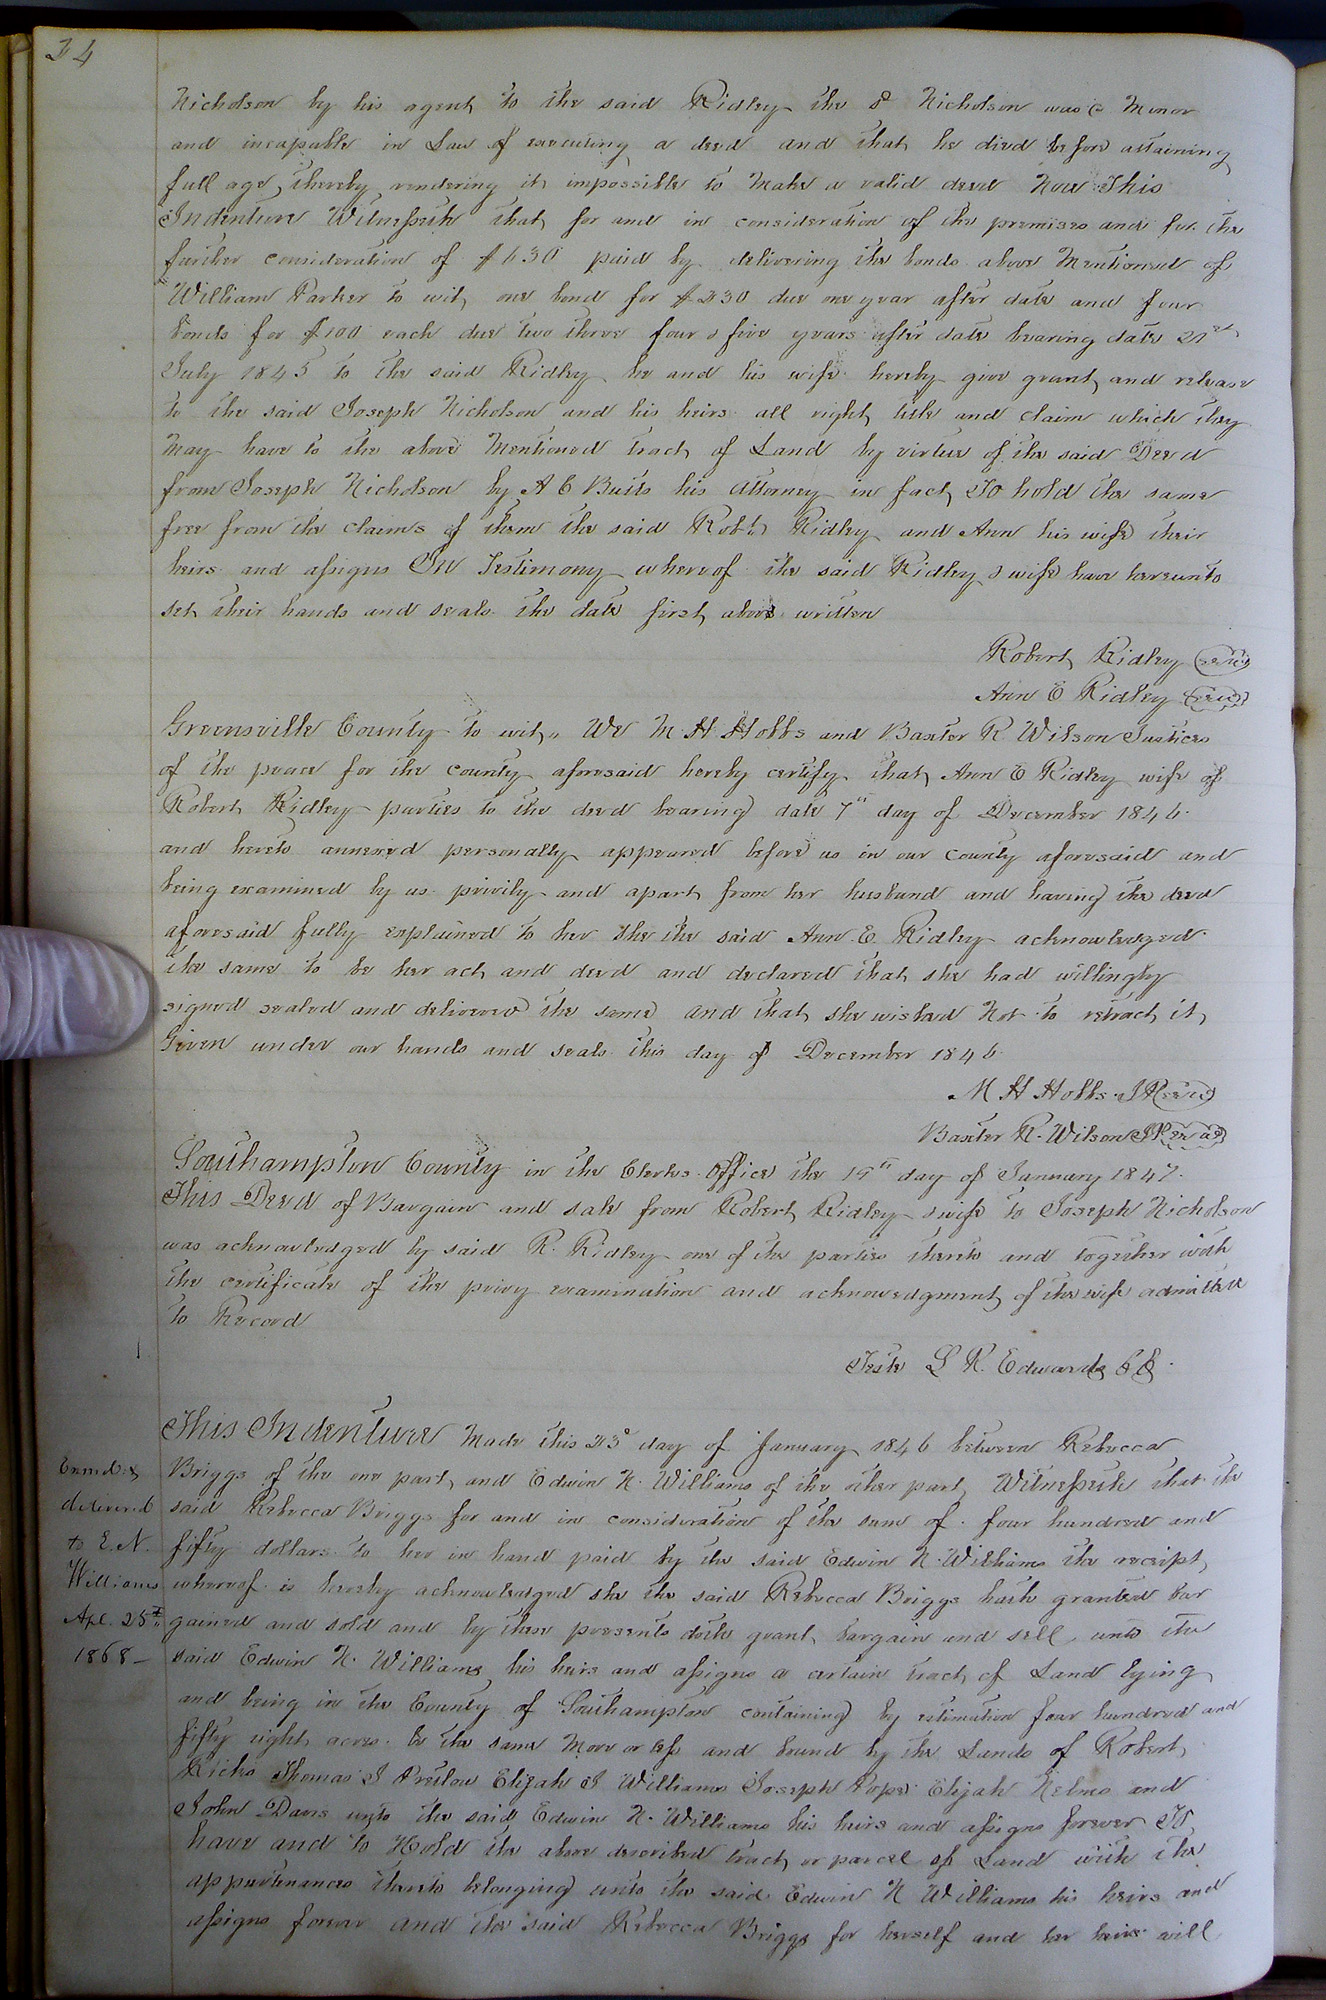 24
Nicholson by his agent to the said Ridley the sd Nicholson was a Minor
and incapable in Law of executing a deed and that he died before attaining
full age, thereby rendering it impossible to Make a valid deed Now This
Indenture Witnesseth that for and in consideration of the premises and for the
further consideration of $630 paid by delivering the bonds above Mentioned of
William Parker to wit, one bond for $230 due one year after date and four
bonds for $100 each due two three four & five years after date bearing date 21st
July 1845 to the said Ridley he and his wife hereby give grant and release
to the said Joseph Nicholson and his heirs all right title and claim which they
May have to the above Mentioned tract of Land by virtue of the said Deed
from Joseph Nicholson by A C Butts his Attorney in fact, To hold the same
free from the claims of them the said Robt. Ridley and Ann his wife their
heirs and assigns In Testimony whereof the said Ridley & wife have hereunto
set their hands and seals the date first above written
Robert Ridley (seal)
Ann E Ridley (seal)
Greensville County to wit,, We M H Hobbs and Baxter R Wilson Justices
of the peace for the county aforesaid hereby certify that Ann E Ridley wife of
Robert Ridley parties to the deed bearing date 7th day of December 1846
and hereto annexed personally appeared before us in our county aforesaid and
being examined by us privily and apart from her husband and having the deed
aforesaid fully explained to her she the said Ann E. Ridley acknowledged
the same to be her act and deed and declared that she had willingly
signed sealed and delivered the same and that she wished Not to retract it,
Given under our hands and seals this day of December 1846
M H Hobbs JP (seal)
Baxter R. Wilson JP (seal)
Southampton County in the Clerks Office the 19th day of January 1847.
This Deed of Bargain and sale from Robert Ridley & wife to Joseph Nicholson
was acknowledged by said R. Ridley one of the parties thereto and together with
the certificate of the privy examination and acknowledgment of the wife admitted
to Record
Teste L R. Edwards CC.
This Indenture Made this 23d day of January 1846 between Rebecca
Briggs of the one part, and Edwin N. Williams of the other part, Witnesseth that the
said Rebecca Briggs for and in consideration of the sum of four hundred and
fifty dollars to her in hand paid by the said Edwin N. Williams the receipt
whereof is hereby acknowledged she the said Rebecca Briggs hath granted bar
gained and sold and by these presents doth grant, bargain and sell, unto the
said Edwin N. Williams his heirs and assigns a certain tract of Land lying
and being in the County of Southampton containing by estimation four hundred and
fifty eight acres be the same More or less and bound by the Lands of Robert
Ricks Thomas J Preslow Elijah J Williams Joseph Pope Elijah Nelms and
John Davis unto the said Edwin N. Williams his heirs and assigns forever To
have and to Hold the above described tract or parcel of Land with the
appurtenances thereto belonging unto the said Edwin N Williams his heirs and
assigns forever and the said Rebecca Briggs for herself and her heirs will
Examd. &
delivered
to E. N.
Williams
Apl. 25th
1868—